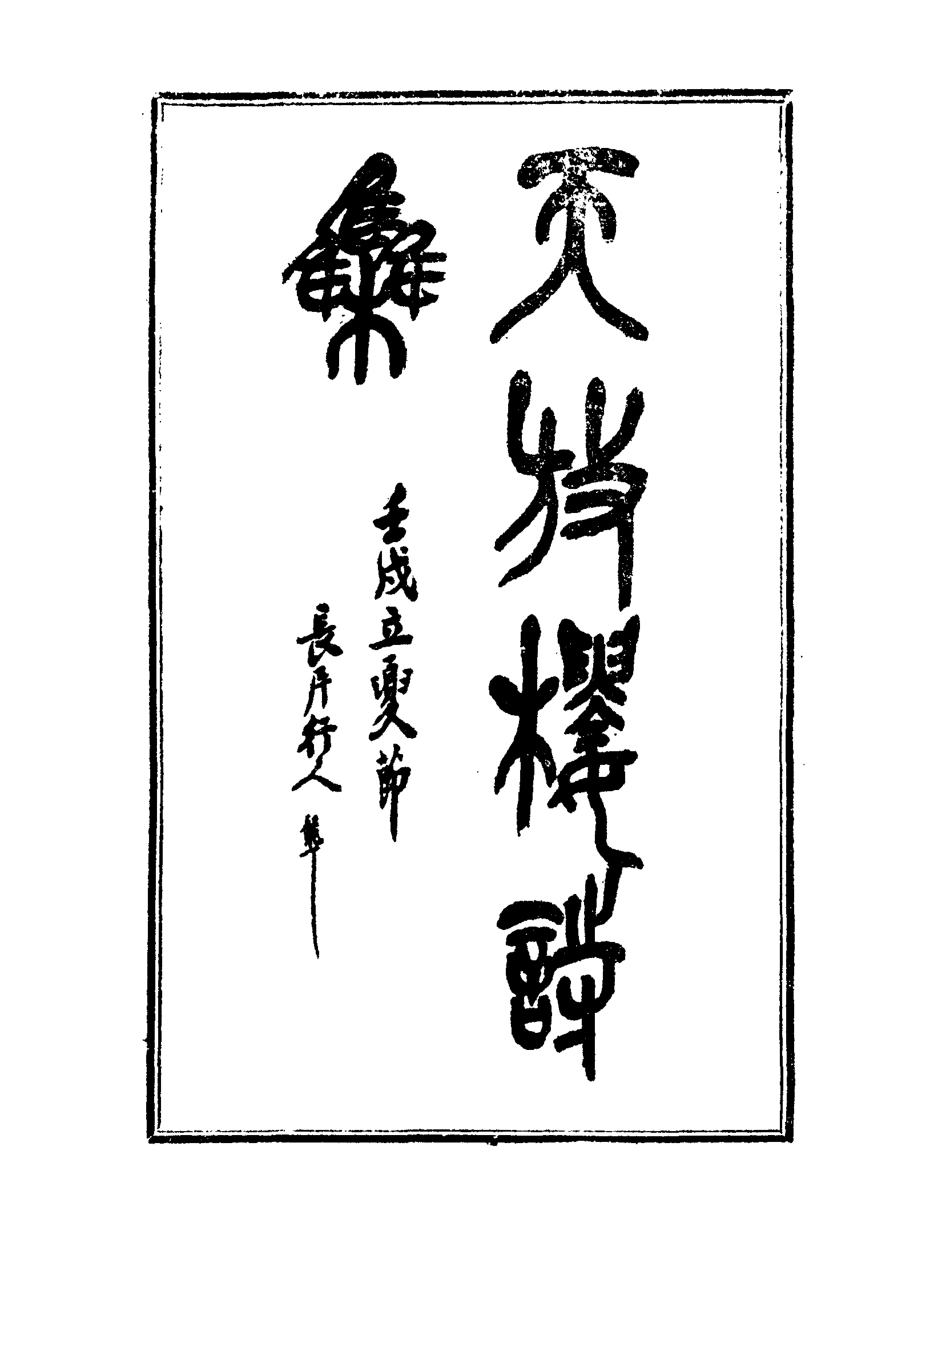 天放樓詩
集
壬戌立夏節
長行人